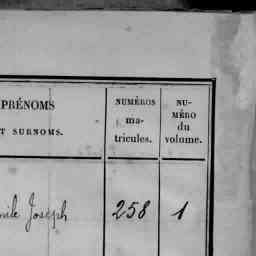 PRÉNOMS
T SURNOMS.
NUMÉROS
ma-
tricules.
NU-
MÉRO
du
volume.
mile Joseph 258 1